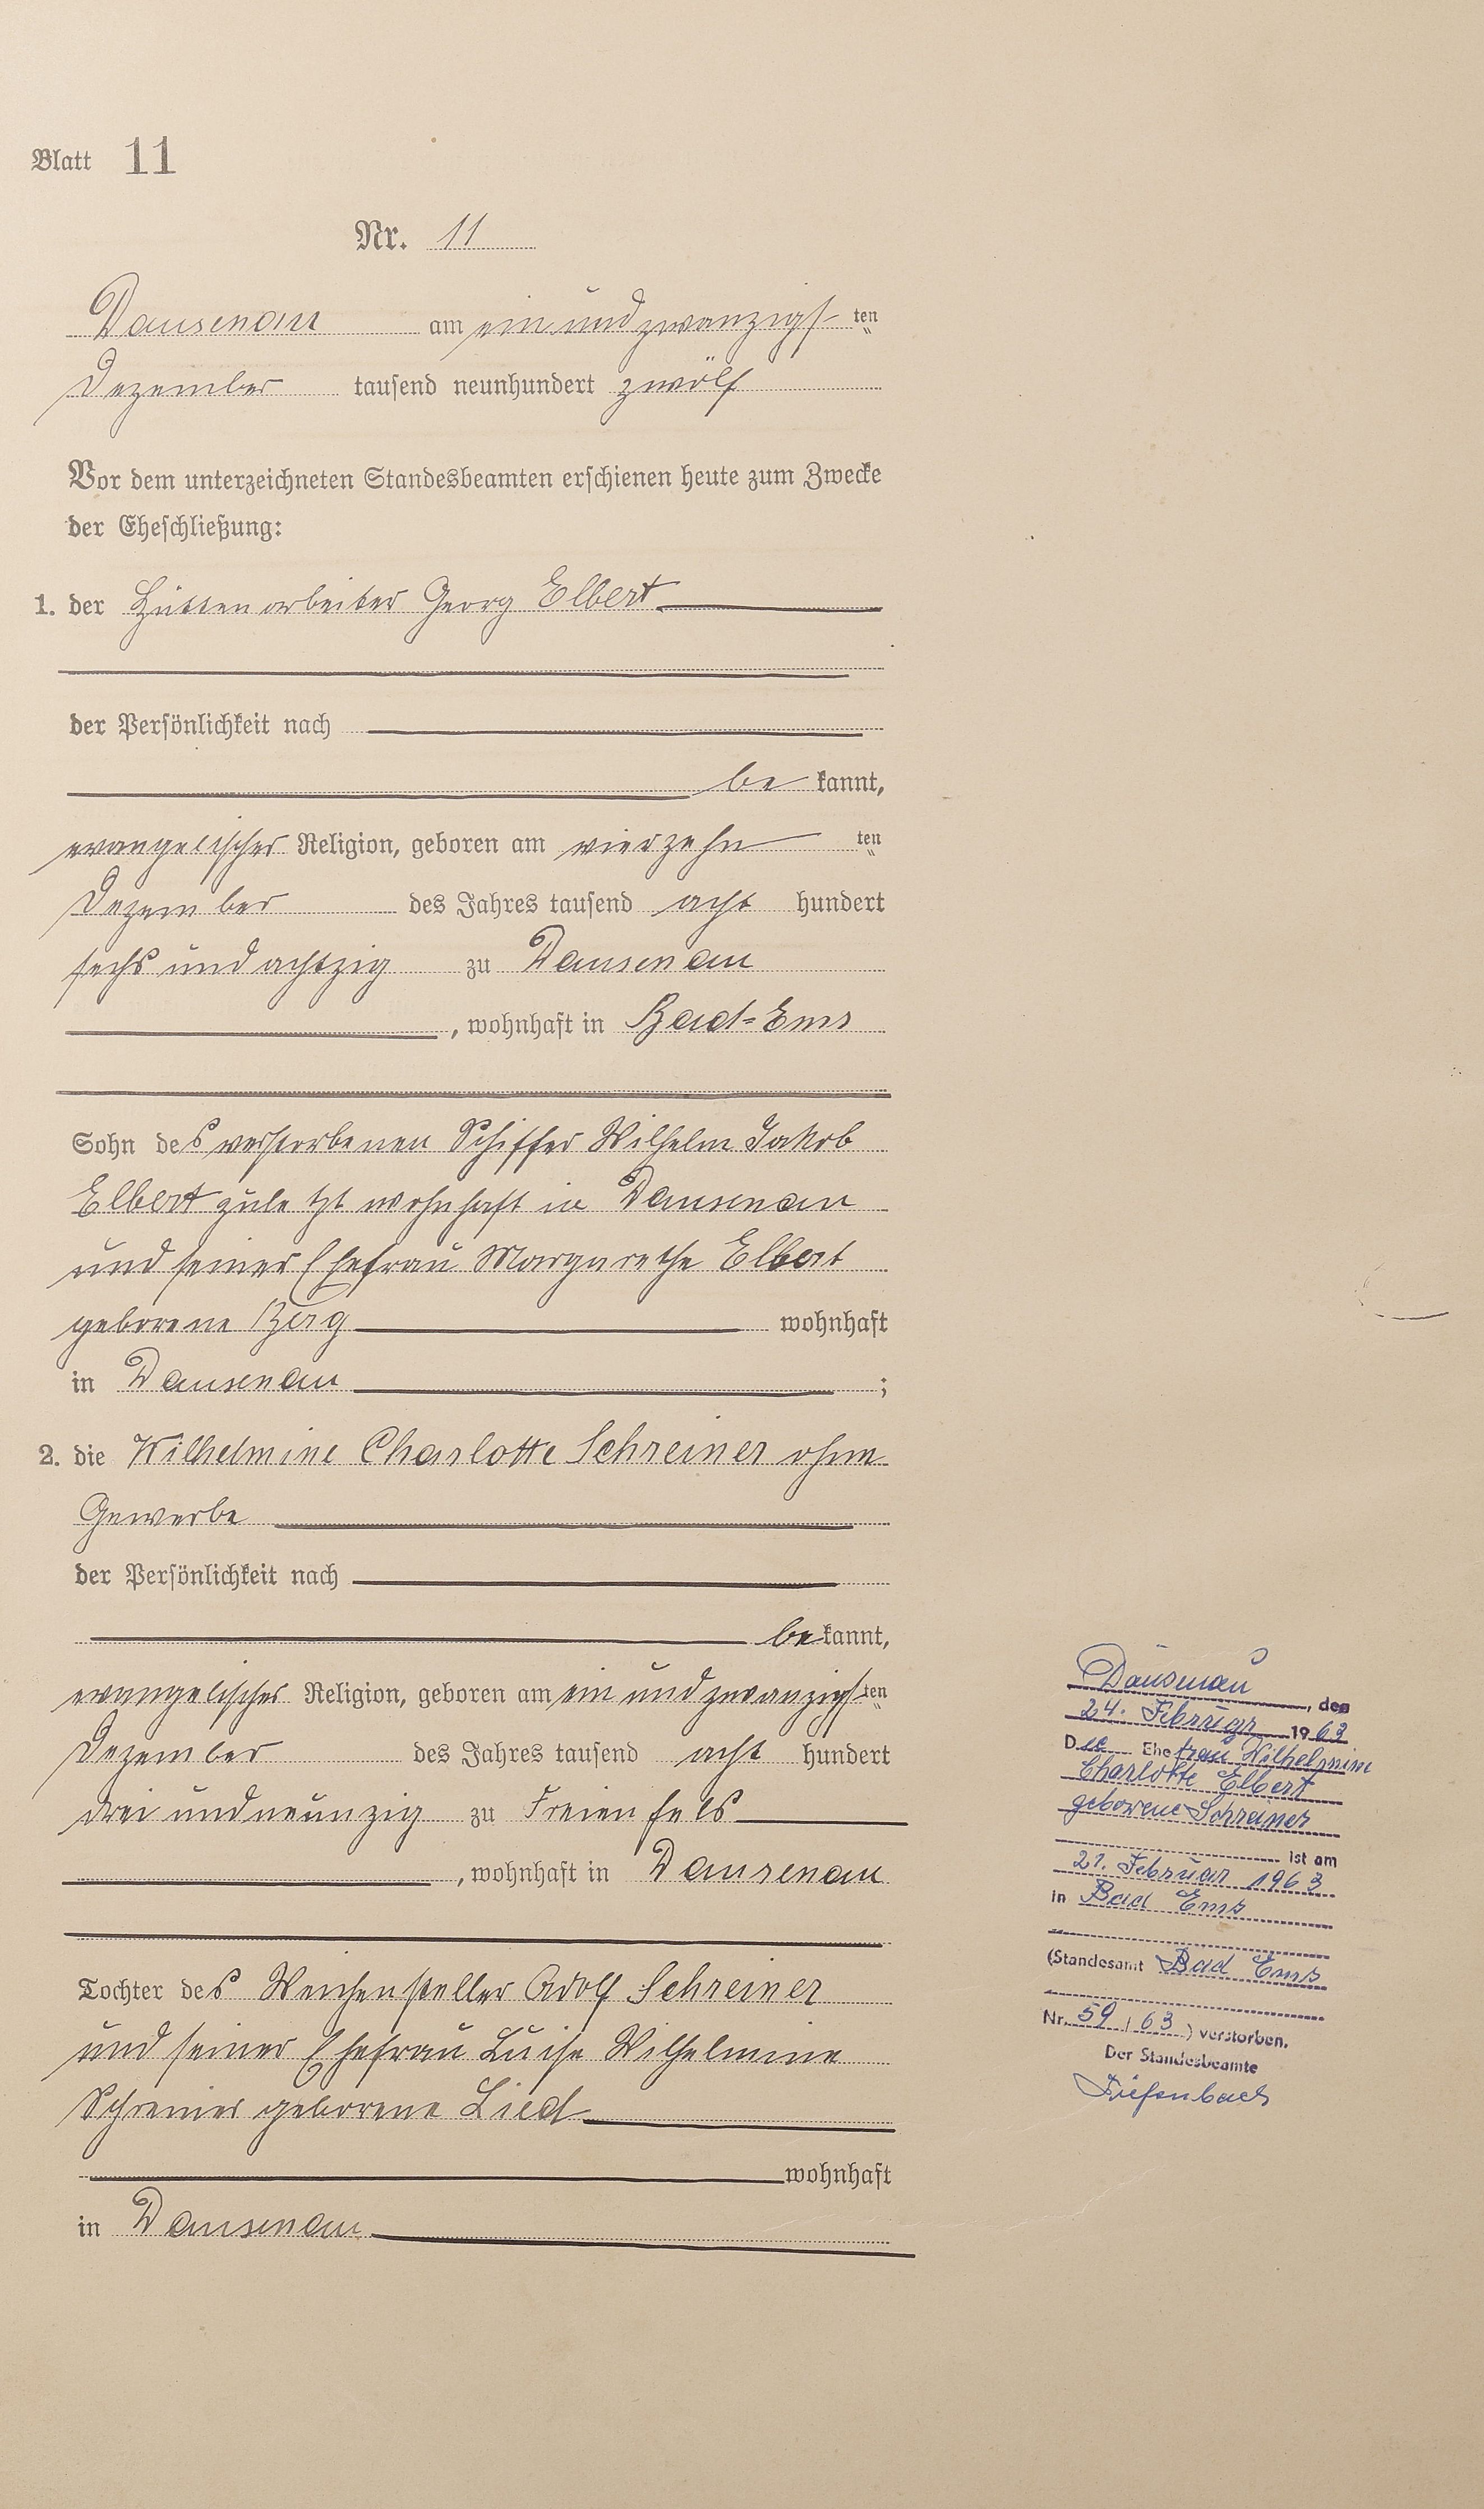 Blatt 11
Nr. 11
Dausenau am ein und zwanzigsten
Dezember tausend neunhundert zwölf
Vor dem unterzeichneten Standesbeamten erschienen heute zum Zwecke
der Eheschließung:
1. der Hüttenarbeiter Georg Elbert
der Persönlichkeit nach
bekannt,
evangelischer Religion, geboren am vierzehnten
Dezember des Jahres tausend acht hundert
sechs und achtzig zu Dausenau
, wohnhaft in Bad=Ems
Sohn des verstorbenen Schiffer Wilhelm Jakob
Elbert zuletzt wohnhaft in Dausenau
und seiner Ehefrau Margarethe Elbert
geborene Berg wohnhaft
in Dausenau ;
2. die Wilhelmine Charlotte Schreiner ohne
Gewerbe
der Persönlichkeit nach
bekannt,
evangelischer Religion, geboren am ein und zwanzigsten
Dezember des Jahres tausend acht hundert
drei und neunzig zu Freienfels
, wohnhaft in Dausenau
Tochter des Weichensteller Adolf Schreiner
und seiner Ehefrau Luise Wilhelmine
Schreiner geborene Lied
wohnhaft
in Dausenau
Dausenau, den
24. Februar 1963
Die Ehefrau Wilhelmine
Charlotte Elbert
geborene Schreiner
ist am
21. Februar 1963
in Bad Ems
(Standesamt Bad Ems
Nr. 59 / 63) verstorben.
Der Standesbeamte